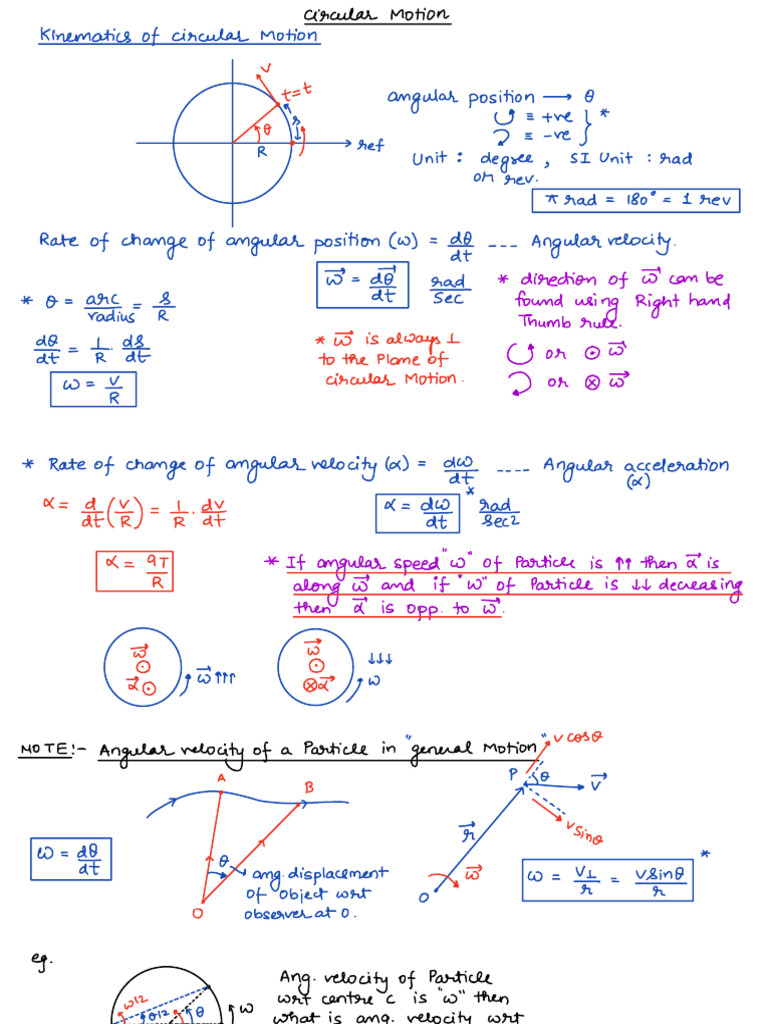 Circular Motion
Kinematics of circular Motion
v
t=t
s
θ
R
ref
angular position ⟶ θ
↺ ≡ +ve } *
↻ ≡ -ve
Unit : degree , SI Unit : rad
or rev.
π rad = 180° = 1 rev
Rate of change of angular position (ω) = dθ/dt --- Angular velocity.
* θ = arc/radius = s/R
dθ/dt = 1/R · ds/dt
ω = v/R
ω⃗ = dθ⃗/dt rad/sec
* ω⃗ is always ⊥
to the Plane of
circular Motion.
* direction of ω⃗ can be
found using Right hand
Thumb rule.
↺ or ⊙ ω⃗
↻ or ⊗ ω⃗
* Rate of change of angular velocity (α) = dω/dt ---- Angular acceleration
(α)
α = d/dt (v/R) = 1/R · dv/dt
α = dω/dt * rad/sec²
α = aT/R
* If angular speed "ω" of Particle is ↑↑ then α⃗ is
along ω⃗ and if "ω" of Particle is ↓↓ decreasing
then α⃗ is opp. to ω⃗.
ω⃗
⊙
α⃗ ⊙
ω⃗ ↑↑↑
ω⃗
⊙
⊗ α⃗
↓↓↓
ω
NOTE:- Angular velocity of a Particle in "general Motion"
A
B
θ
O
ω = dθ/dt
ang. displacement
of object wrt
observer at O.
v cosθ
P
θ
v⃗
v sinθ
r⃗
ω⃗
O
ω = v⊥/r = v sinθ/r *
eg.
ω/2
θ/2
θ
ω
Ang. velocity of Particle
wrt centre c is "ω" then
what is ang. velocity wrt